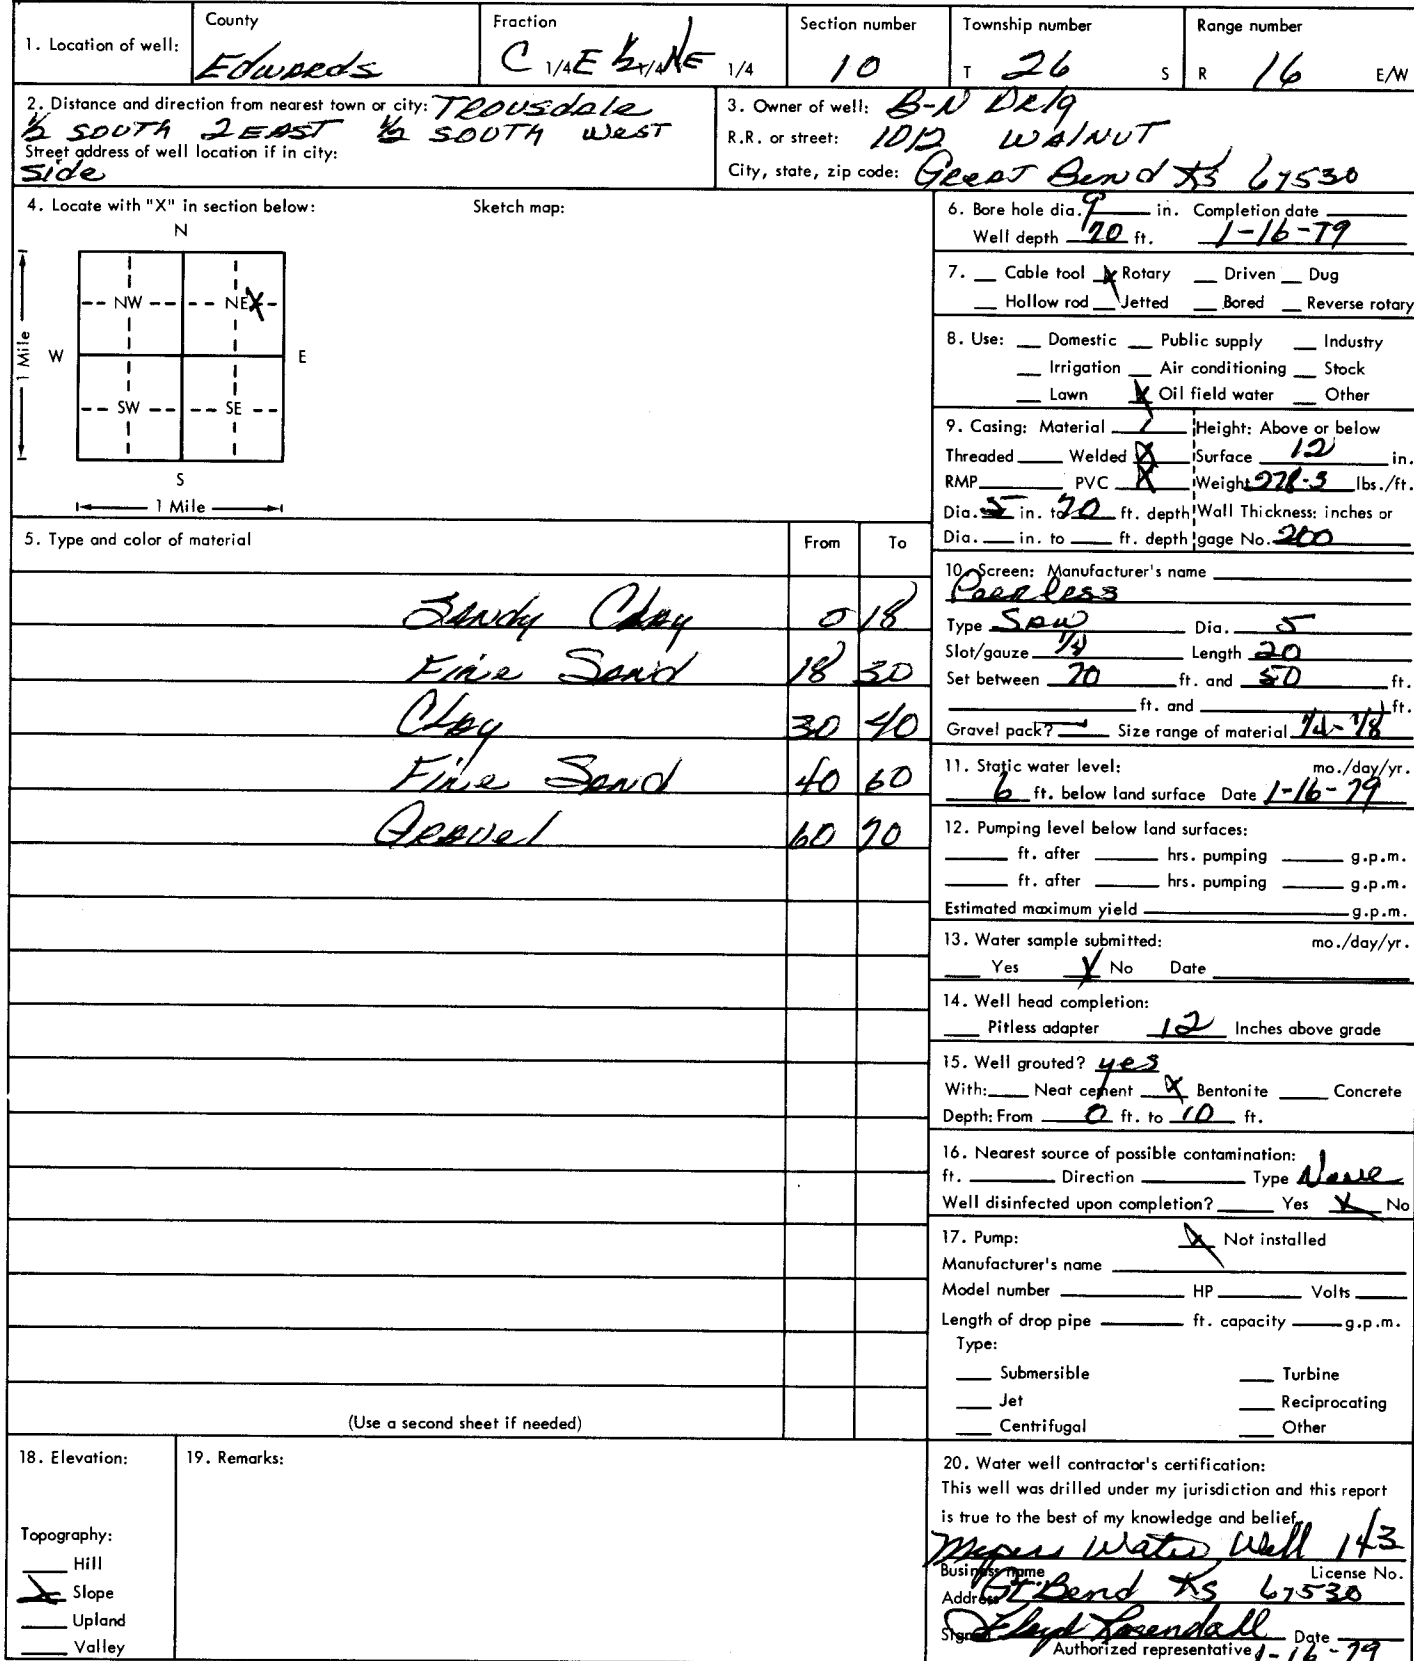 1. Location of well:
County
Edwards
Fraction
C 1/4 E 1/2 1/4 NE 1/4
Section number
10
Township number
T 26 S
Range number
R 16 E/W
2. Distance and direction from nearest town or city: Trousdale
1/2 SOUTH 2 EAST 1/2 SOUTH West
Street address of well location if in city:
Side
3. Owner of well: B-N Drlg
R.R. or street: 1012 WALNUT
City, state, zip code: Great Bend Ks 67530
4. Locate with "X" in section below:
Sketch map:
N
NW NE X
W E
1 Mile
SW SE
S
1 Mile
5. Type and color of material From To
Sandy Clay 0 18
Fine Sand 18 30
Clay 30 40
Fine Sand 40 60
Gravel 60 70
(Use a second sheet if needed)
6. Bore hole dia. 9 in. Completion date
Well depth 70 ft. 1-16-79
7. __ Cable tool X Rotary __ Driven __ Dug
__ Hollow rod __ Jetted __ Bored __ Reverse rotary
8. Use: __ Domestic __ Public supply __ Industry
__ Irrigation __ Air conditioning __ Stock
__ Lawn X Oil field water __ Other
9. Casing: Material ____ Height: Above or below
Threaded ____ Welded X Surface 12 in.
RMP ____ PVC X Weight 278-3 lbs./ft.
Dia. 5 in. to 70 ft. depth Wall Thickness: inches or
Dia. __ in. to __ ft. depth gage No. 200
10. Screen: Manufacturer's name
Peerless
Type Saw Dia. 5
Slot/gauze 1/4 Length 20
Set between 70 ft. and 50 ft.
____ ft. and ____ ft.
Gravel pack? ____ Size range of material 1/4-1/8
11. Static water level: mo./day/yr.
6 ft. below land surface Date 1-16-79
12. Pumping level below land surfaces:
____ ft. after ____ hrs. pumping ____ g.p.m.
____ ft. after ____ hrs. pumping ____ g.p.m.
Estimated maximum yield ____ g.p.m.
13. Water sample submitted: mo./day/yr.
__ Yes X No Date ____
14. Well head completion:
__ Pitless adapter 12 Inches above grade
15. Well grouted? yes
With: __ Neat cement X Bentonite __ Concrete
Depth: From 0 ft. to 10 ft.
16. Nearest source of possible contamination:
ft. ____ Direction ____ Type None
Well disinfected upon completion? __ Yes X No
17. Pump: X Not installed
Manufacturer's name ____
Model number ____ HP ____ Volts ____
Length of drop pipe ____ ft. capacity ____ g.p.m.
Type:
__ Submersible __ Turbine
__ Jet __ Reciprocating
__ Centrifugal __ Other
18. Elevation:
Topography:
__ Hill
X Slope
__ Upland
__ Valley
19. Remarks:
20. Water well contractor's certification:
This well was drilled under my jurisdiction and this report
is true to the best of my knowledge and belief.
Water Well 143
Business name License No.
Address Gt. Bend Ks 67530
Signed Floyd Rosendall Date
Authorized representative 1-16-79